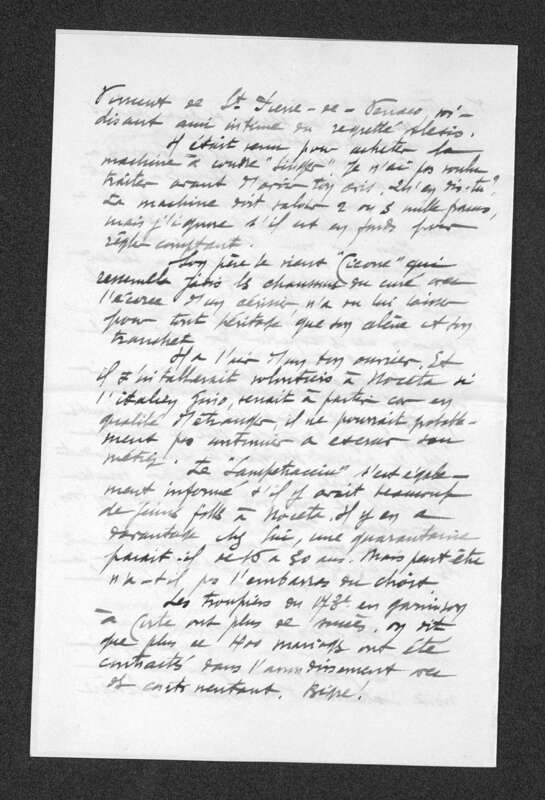 Vincent de St Pierre-de-Venaco, soi-
disant ami intime du regretté Alexis.
Il était venu pour acheter la
machine à coudre "Singer". Je n'ai pas voulu
traiter avant d'avoir ton avis. Qu'en dis-tu?
La machine doit valoir 2 ou 3 mille francs,
mais j'ignore s'il est en fonds pour
régler comptant.
Son père le vieux qui
ressemela jadis les chaussures du curé avec
l'écorce d'un cerisier n'a pu lui laisser
pour tout héritage que son alène et son
tranchet.
Il a l'air d'un bon ouvrier. Et
il s'installerait volontiers à Noceta si
l'italien Gino, venait à partir car en
qualité d'étranger, il ne pourrait probable-
ment pas continuer à exercer son
métier. Le s'est égale-
ment informé s'il y avait beaucoup
de jeunes filles à Noceta. Il y en a
davantage chez lui, une quarantaine
parait-il de 16 à 30 ans. Mais peut être
n'a-t-il pas l'embarras du choix.
Les troupiers du 173e en garnison
à Corte ont plus de succès. On dit
que plus de 400 mariages ont été
contractés dans l'arrondissement avec
des Bigre!